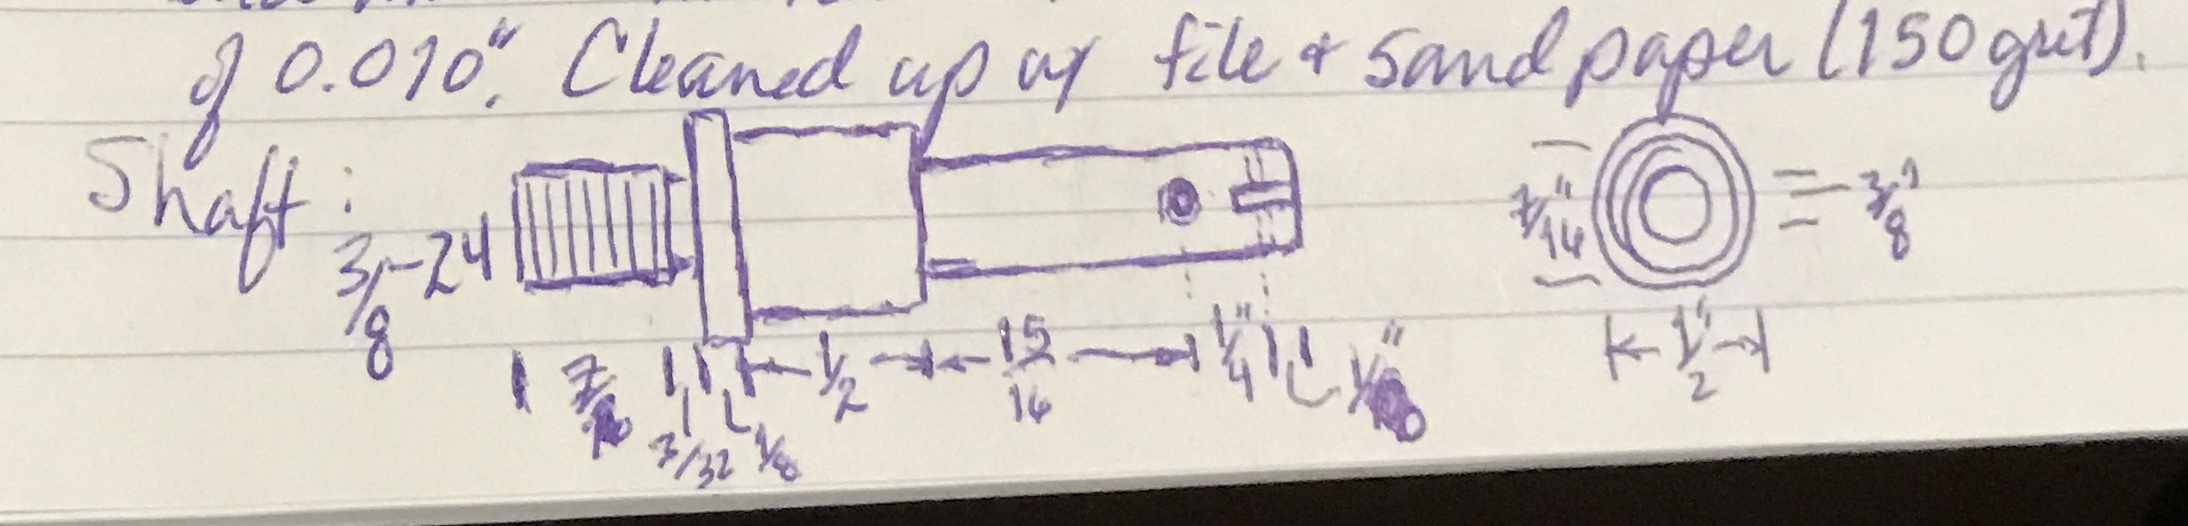 of 0.010". Cleaned up w/ file + Sand paper (150 grit).
Shaft:
3/8-24
7/16" 3/8"
3/32 1/8 1/2 15/16 1/4"
1/2"